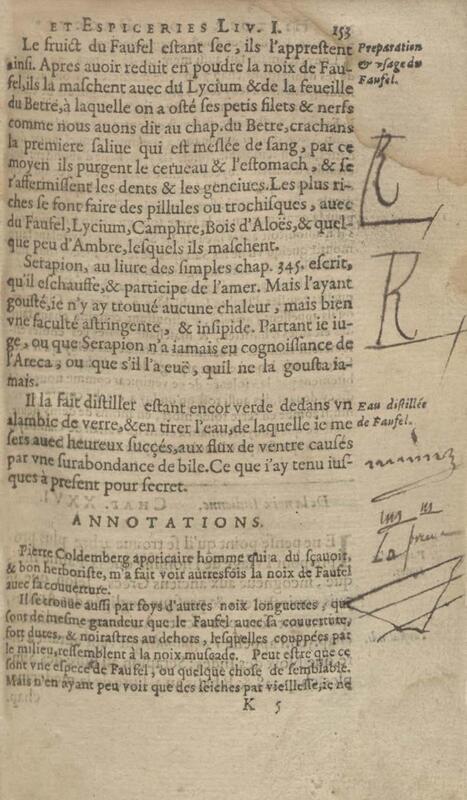 ET ESPICERIES LIV. I. 153
Le fruict du Faufel estant sec, ils l'apprestent
ainsi. Apres auoir reduit en poudre la noix de Fau-
fel, ils la maschent auec du Lycium & de la fueille
du Betre, à laquelle on a osté ses petis filets & nerfs
comme nous auons dit au chap. du Betre, crachans
la premiere saliue qui est meslée de sang, par ce
moyen ils purgent le cerueau & l'estomach, & se
r'affermissent les dents & les genciues. Les plus ri-
ches se font faire des pillules ou trochisques, auec
du Faufel, Lycium, Camphre, Bois d'Aloës, & quel-
que peu d'Ambre, lesquels ils maschent.
Serapion, au liure des simples chap. 345. escrit,
qu'il eschauffe, & participe de l'amer. Mais l'ayant
gousté, ie n'y ay trouué aucune chaleur, mais bien
vne faculté astringente, & insipide. Partant ie iu-
ge, ou que Serapion n'a iamais eu cognoissance de
l'Areca, ou que s'il l'a euë, quil ne la gousta ia-
mais.
Il la fait distiller estant encor verde dedans vn
alambic de verre, & en tirer l'eau, de laquelle ie me
sers auec heureux succés, aux flux de ventre causés
par vne surabondance de bile. Ce que i'ay tenu ius-
ques à present pour secret.
ANNOTATIONS.
Pierre Coldemberg apoticaire homme qui a du sçauoir,
& bon herboriste, m'a fait voir autresfois la noix de Faufel
auec sa couuerture.
Il se trouue aussi par foys d'autres noix longuettes, qui
sont de mesme grandeur que le Faufel auec sa couuerture,
fort dures, & noirastres au dehors, lesquelles couppées par
le milieu, ressemblent à la noix muscade. Peut estre que ce
sont vne espece de Faufel, ou quelque chose de semblable.
Mais n'en ayant peu voir que des seiches par vieillesse, ie ne
K 5
chap.
Preparation
& vsage du
Faufel.
R
R
Eau distillée
de Faufel.